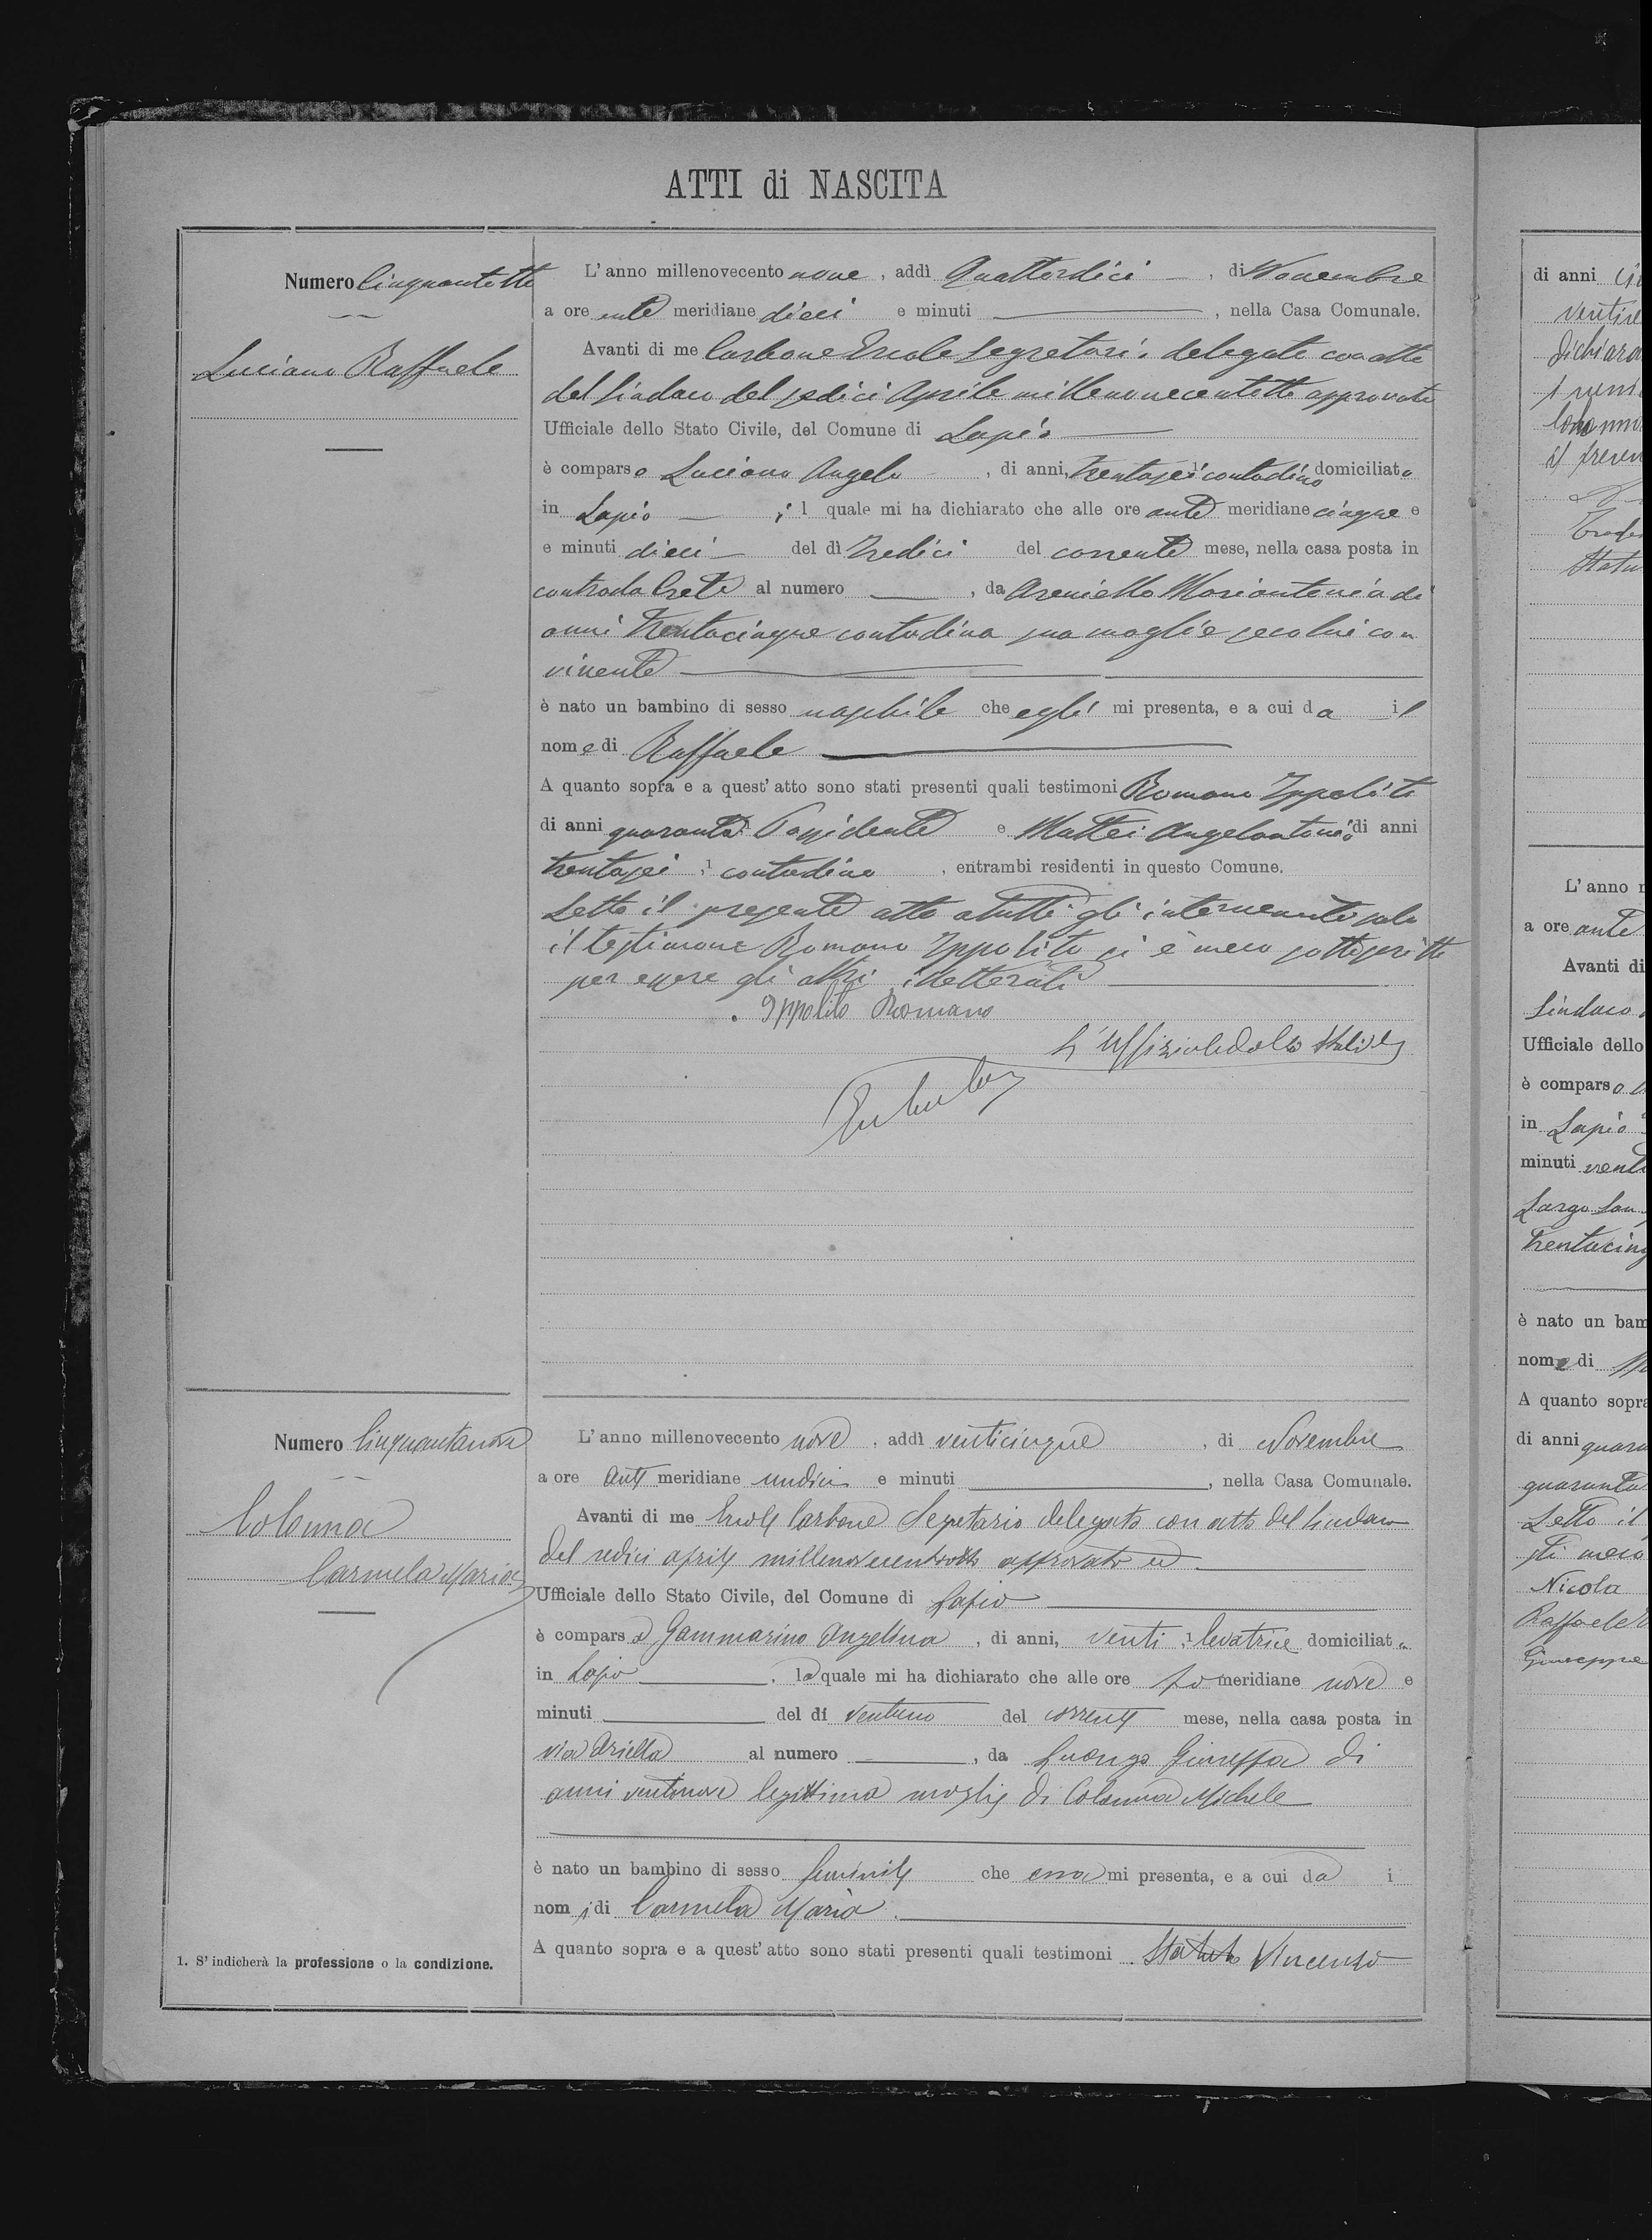 ATTI di NASCITA
Numero Cinquantotto
Luciano Raffaele
L'anno millenovecento nove, addì Quattordici, di Novembre
a ore ante meridiane dieci e minuti, nella Casa Comunale.
Avanti di me Carbone Ercole Segretario delegato con atto
del Sindaco del sedici Aprile millenovecentotto approvato
Ufficiale dello Stato Civile, del Comune di Lapio
è comparso Luciano Angelo, di anni, trentasei 1 contadino domiciliato
in Lapio, il quale mi ha dichiarato che alle ore ante meridiane cinque e
e minuti dieci del dì tredici del corrente mese, nella casa posta in
contrada Crete al numero, da Areniello Mariantonia di
anni trentacinque contadina sua moglie seco lui con
vivente
è nato un bambino di sesso maschile che egli mi presenta, e a cui da il
nome di Raffaele
A quanto sopra e a quest'atto sono stati presenti quali testimoni Romano Ippolito
di anni quaranta Possidente e Mattei Angelantonio di anni
trentasei, 1 contadino, entrambi residenti in questo Comune.
Letto il presente atto a tutti gli intervenuti solo
il testimone Romano Ippolito si è meco sottoscritto
per essere gli altri illetterati
Ippolito Romano
L'Uffiziale dello Stato Civile
Numero Cinquantanove
Colonna
Carmela Maria
L'anno millenovecento nove, addì venticinque, di Novembre
a ore ante meridiane undici e minuti, nella Casa Comunale.
Avanti di me Ercole Carbone Segretario delegato con atto del Sindaco
del sedici aprile millenovecentotto approvato ed
Ufficiale dello Stato Civile, del Comune di Lapio
è comparsa Gammarino Angelina, di anni, venti, 1 levatrice domiciliata
in Lapio, la quale mi ha dichiarato che alle ore po meridiane nove e
minuti del dì ventuno del corrente mese, nella casa posta in
via Ariella al numero, da Luongo Giuseppa di
anni ventinove legittima moglie di Colonna Michele
è nato un bambino di sesso feminile che essa mi presenta, e a cui da i
nomi di Carmela Maria.
A quanto sopra e a quest'atto sono stati presenti quali testimoni Statuto Vincenzo
1. S'indicherà la professione o la condizione.
di anni
dichiara
il presen
L'anno
a ore ante
Avanti di
Sindaco
Ufficiale dello
è comparso
in Lapio
minuti
Largo San
trentacinq
è nato un bam
nome di
A quanto sopra
di anni quara
quaranta
Letto il
sti meco
Nicola
Raffaele
Giuseppe